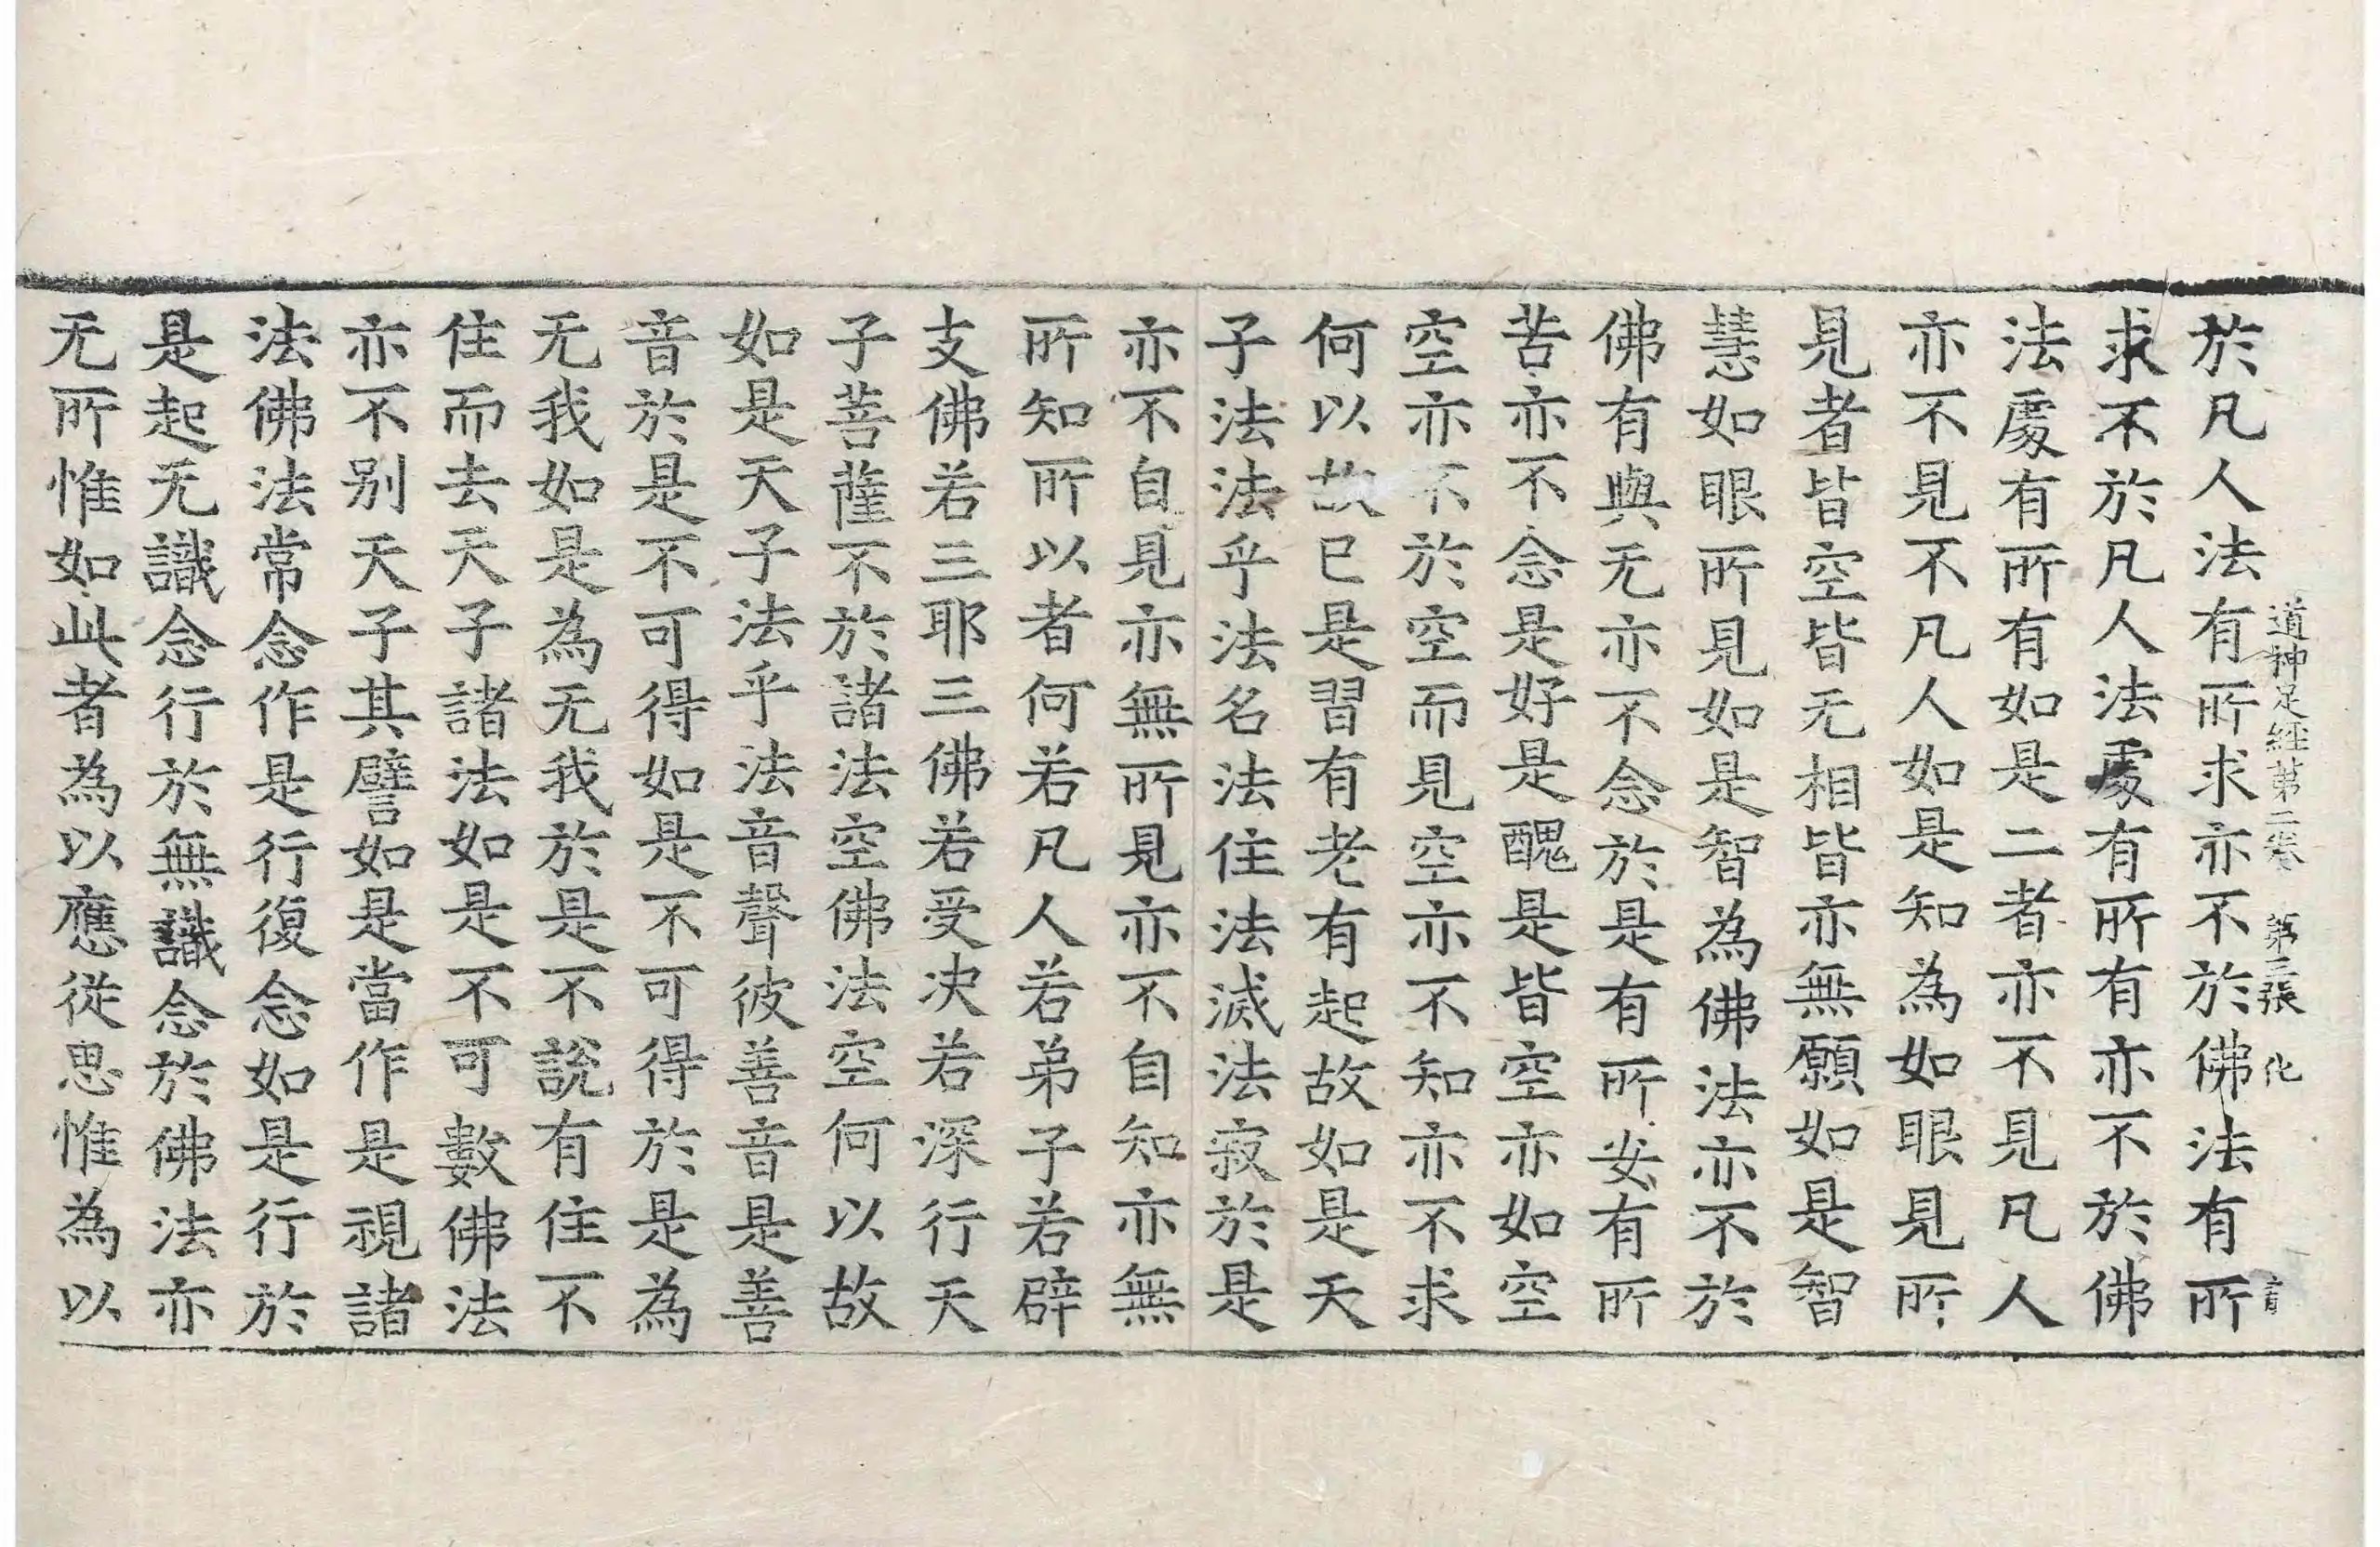 道神足經第二卷 第三張 化
於凡人法有所求亦不於佛法有所
求不於凡人法處有所有亦不於佛
法處有所有如是二者亦不見凡人
亦不見不凡人如是知為如眼見所
見者皆空皆无相皆亦無願如是智
慧如眼所見如是智為佛法亦不於
佛有與无亦不念於是有所安有所
苦亦不念是好是醜是皆空亦如空
空亦不於空而見空亦不知亦不求
何以故已是習有老有起故如是天
子法法乎法名法住法滅法寂於是
亦不自見亦無所見亦不自知亦無
所知所以者何若凡人若弟子若辟
支佛若三耶三佛若受决若深行天
子菩薩不於諸法空佛法空何以故
如是天子法乎法音聲彼善音是善
音於是不可得如是不可得於是為
无我如是為无我於是不說有住不
住而去天子諸法如是不可數佛法
亦不别天子其譬如是當作是視諸
法佛法常念作是行復念如是行於
是起无識念行於無識念於佛法亦
无所惟如此者為以應從思惟為以